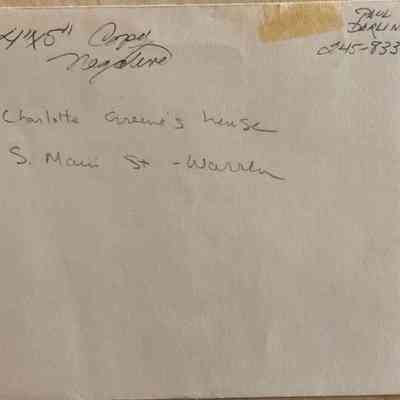 4"x5" Copy
Negative
PAUL
DARLIN
245-833
Charlotte Greene's house
S. Main St - Warren